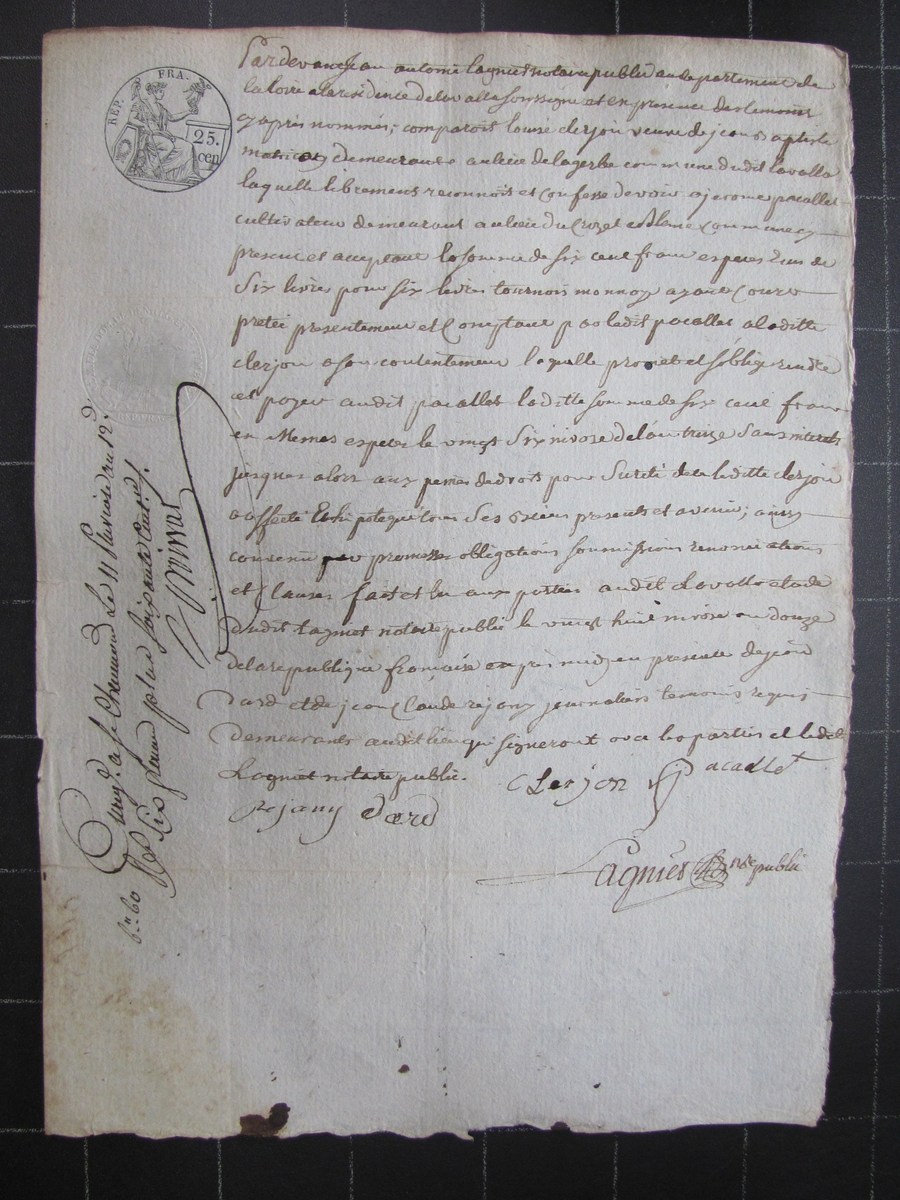 REP. FRA.
25.
cen.
Pardevant Jean antoine Lagniet notaire public au departement de
la loire a la residence de lavalla soussigné et en presence des temoins
cy apres nommés; comparoit louise clerjon veuve de jean baptiste
demeurante au lieu de lagerbe commune dudit lavalla
laquelle librement reconnoit et confesse devoir a jerome pacallet
cultivateur demeurant au lieu du Crozet commune cy
present et acceptant la somme de six cent franc especes ecus de
Six livres pour six livres tournois monnoye ayant cours
pretée presentement et Comptant par ledit pacallet a laditte
clerjon a son contentement laquelle promet et s'oblige rendre
et payer audit pacallet laditte somme de six cent franc
en Memes especes le vingt Six nivose de l'an treize Sans interets
jusques alors aux peines de droit pour Sureté de ce laditte clerjon
a affecté Et hipotequé tous ses biens presents et avenir; ainsy
convenu par promesses obligations soumissions renonciations
et Clauses fait et lu aux parties audit Lavalla etude
dudit Lagniet notaire public le vingt huit nivose an douze
de la republique française apres midy en presence de jean
dard et de jean Claude rejany journaliers temoins requis
demeurants audit lieu qui signeront avec les parties et ledit
Lagniet notaire public.
Clerjon pacallet
rejany dard
Lagniet nre public
Enregt. a St Chamond le 11 Pluviose an 12